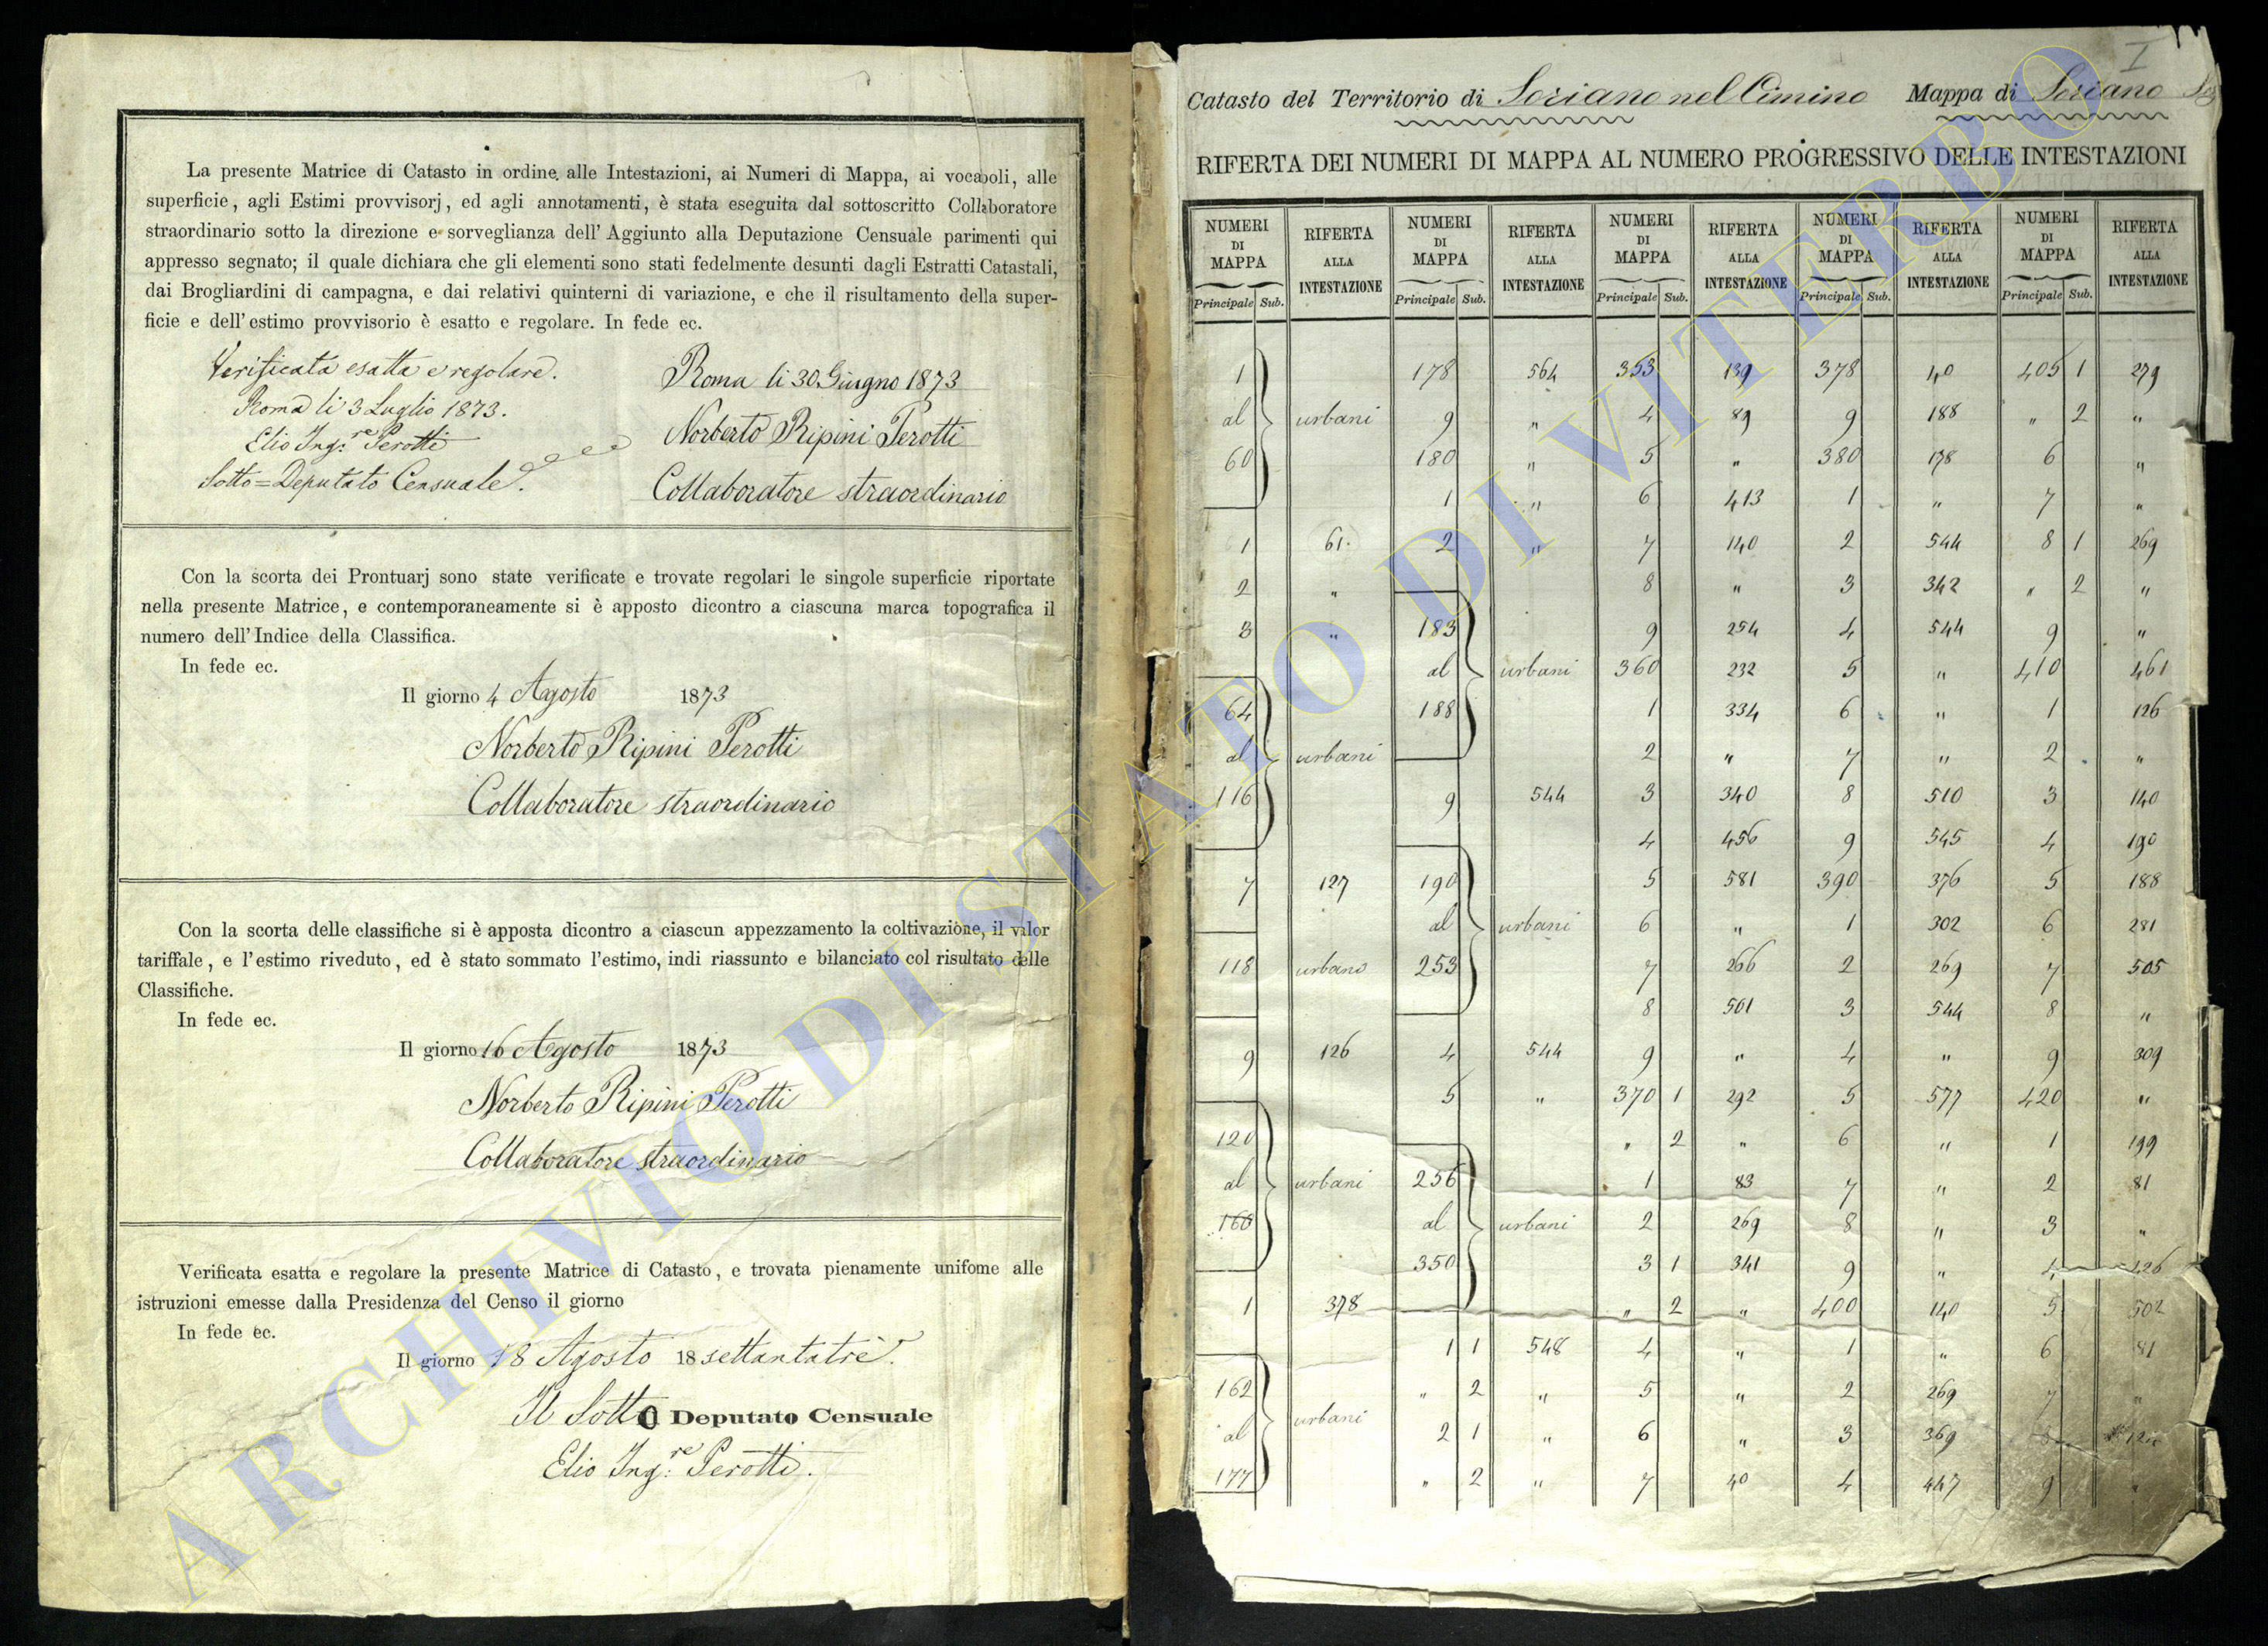 La presente Matrice di Catasto in ordine alle Intestazioni, ai Numeri di Mappa, ai vocaboli, alle
superficie, agli Estimi provvisorj, ed agli annotamenti, è stata eseguita dal sottoscritto Collaboratore
straordinario sotto la direzione e sorveglianza dell' Aggiunto alla Deputazione Censuale parimenti qui
appresso segnato; il quale dichiara che gli elementi sono stati fedelmente desunti dagli Estratti Catastali,
dai Brogliardini di campagna, e dai relativi quinterni di variazione, e che il risultamento della super-
ficie e dell' estimo provvisorio è esatto e regolare. In fede ec.
Verificata esatta e regolare.
Roma li 3 Luglio 1873.
Elio Ing:re Perotti
Sotto=Deputato Censuale.
Roma li 30 Giugno 1873
Norberto Ripini Perotti
Collaboratore straordinario
Con la scorta dei Prontuarj sono state verificate e trovate regolari le singole superficie riportate
nella presente Matrice, e contemporaneamente si è apposto dicontro a ciascuna marca topografica il
numero dell' Indice della Classifica.
In fede ec.
Il giorno 4 Agosto 1873
Norberto Ripini Perotti
Collaboratore straordinario
Con la scorta delle classifiche si è apposta dicontro a ciascun appezzamento la coltivazione, il valor
tariffale, e l'estimo riveduto, ed è stato sommato l'estimo, indi riassunto e bilanciato col risultato delle
Classifiche.
In fede ec.
Il giorno 16 Agosto 1873
Norberto Ripini Perotti
Collaboratore straordinario
Verificata esatta e regolare la presente Matrice di Catasto, e trovata pienamente unifome alle
istruzioni emesse dalla Presidenza del Censo il giorno
In fede ec.
Il giorno 18 Agosto 18 settantatrè.
Il Sotto Deputato Censuale
Elio Ing:re Perotti.
I
Catasto del Territorio di Soriano nel Cimino Mappa di Soriano
RIFERTA DEI NUMERI DI MAPPA AL NUMERO PROGRESSIVO DELLE INTESTAZIONI
NUMERI DI MAPPA RIFERTA ALLA INTESTAZIONE NUMERI DI MAPPA RIFERTA ALLA INTESTAZIONE NUMERI DI MAPPA RIFERTA ALLA INTESTAZIONE NUMERI DI MAPPA RIFERTA ALLA INTESTAZIONE NUMERI DI MAPPA RIFERTA ALLA INTESTAZIONE
Principale Sub. Principale Sub. Principale Sub. Principale Sub. Principale Sub.
1 178 564 353 139 378 40 405 1 279
al urbani 9 " 4 89 9 188 " 2 "
60 180 " 5 " 380 178 6 "
1 " 6 413 1 " 7 "
1 61. 2 " 7 140 2 544 8 1 269
2 " 8 " 3 342 " 2 "
3 " 183 9 254 4 544 9 "
al urbani 360 232 5 " 410 461
64 188 1 334 6 " 1 126
al urbani 2 " 7 " 2 "
116 9 544 3 340 8 510 3 140
4 456 9 545 4 190
7 127 190 5 581 390 376 5 188
al urbani 6 " 1 302 6 281
118 urbano 253 7 266 2 269 7 505
8 501 3 544 8 "
9 126 4 544 9 " 4 " 9 309
5 " 370 1 292 5 577 420 "
120 " 2 " 6 " 1 199
al urbani 256 1 83 7 " 2 81
160 al urbani 2 269 8 " 3 "
350 3 1 341 9 " 4 126
1 378 " 2 " 400 140 5 502
1 1 548 4 " 1 " 6 81
162 " 2 " 5 " 2 269 7 "
al urbani 2 1 " 6 " 3 369 8
177 " 2 " 7 40 4 447 9 "
ARCHIVIO DI STATO DI VITERBO